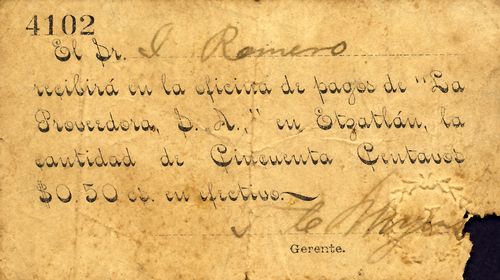 4102
El Sr. I Romero
recibirá en la oficina de pagos de "La
Proveedora, S. A.," en Etzatlán, la
cantidad de Cincuenta Centavos
$0.50 cs. en efectivo.
Gerente.